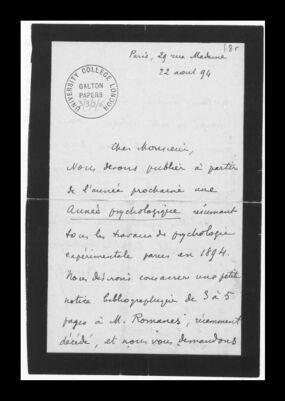 18r
UNIVERSITY COLLEGE LONDON
GALTON
PAPERS
Paris, 29 rue Madame
22 aout 94
Cher Monsieur,
Nous devons publier à partir
de l'année prochaine une
Année psychologique résumant
tous les travaux de psychologie
expérimentale parus en 1894.
Nous désirons consacrer une petite
notice bibliographique de 3 à 5
pages à M. Romanes, récemment
décédé, et nous vous demandons